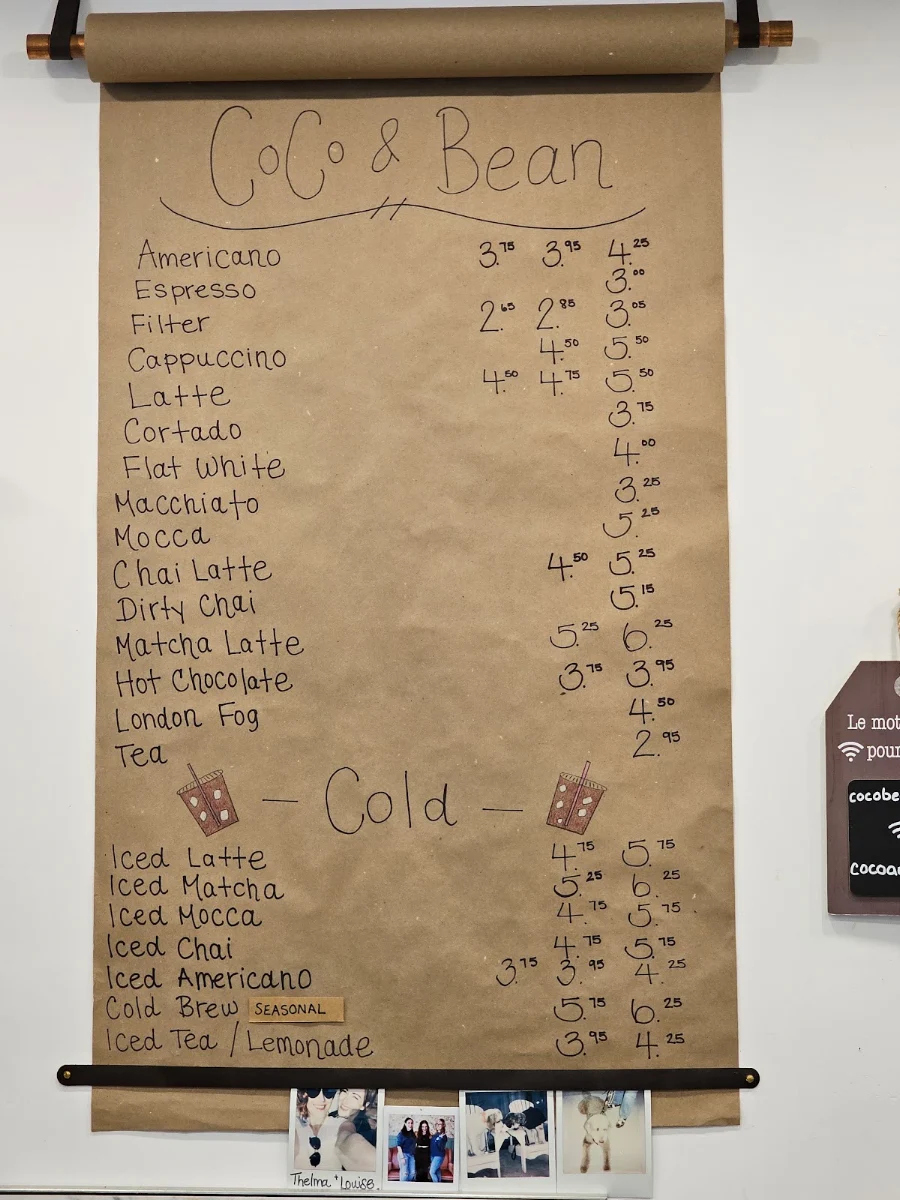 CoCo & Bean
Americano 3.75 3.95 4.25
Espresso 3.00
Filter 2.65 2.85 3.05
Cappuccino 4.50 5.50
Latte 4.50 4.75 5.50
Cortado 3.75
Flat White 4.00
Macchiato 3.25
Mocca 5.25
Chai Latte 4.50 5.25
Dirty Chai 5.15
Matcha Latte 5.25 6.25
Hot Chocolate 3.75 3.95
London Fog 4.50
Tea 2.95
— Cold —
Iced Latte 4.75 5.75
Iced Matcha 5.25 6.25
Iced Mocca 4.75 5.75
Iced Chai 4.75 5.75
Iced Americano 3.75 3.95 4.25
Cold Brew SEASONAL 5.75 6.25
Iced Tea / Lemonade 3.95 4.25
Thelma + Louise.
Le mot
pour
cocobe